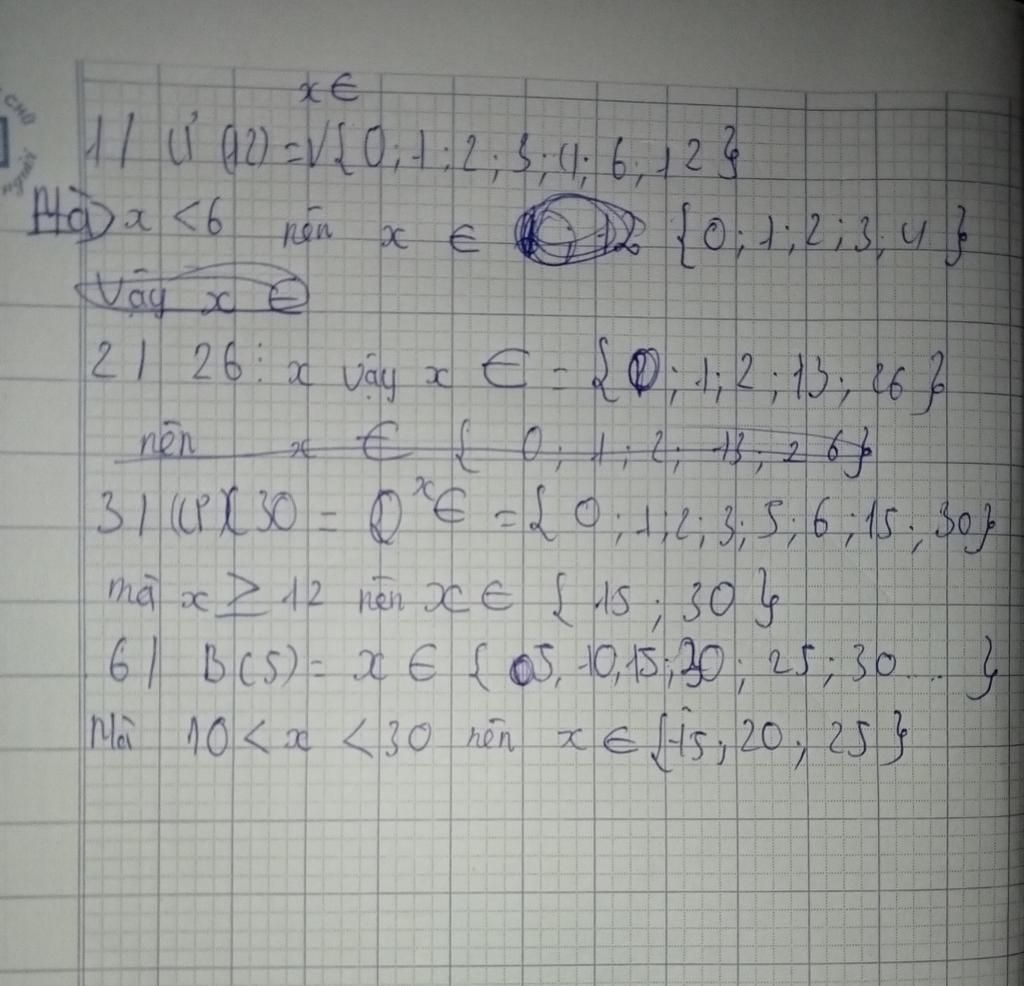 x ∈
1/ Ư(12) = √{0; 1; 2; 3; 4; 6; 12}
Mà x < 6 nên x ∈ {0; 1; 2; 3; 4}
Vậy x ∈
2/ 26 ⋮ x vậy x ∈ = {0; 1; 2; 13; 26}
nên x ∈ {0; 1; 2; 13; 26}
3/ Ư(30 = x ∈ = {0; 1; 2; 3; 5; 6; 15; 30}
mà x ≥ 12 nên x ∈ {15; 30}
6/ B(5) = x ∈ {05, 10, 15; 20; 25; 30... }
Mà 10 < x < 30 nên x ∈ {15; 20; 25}